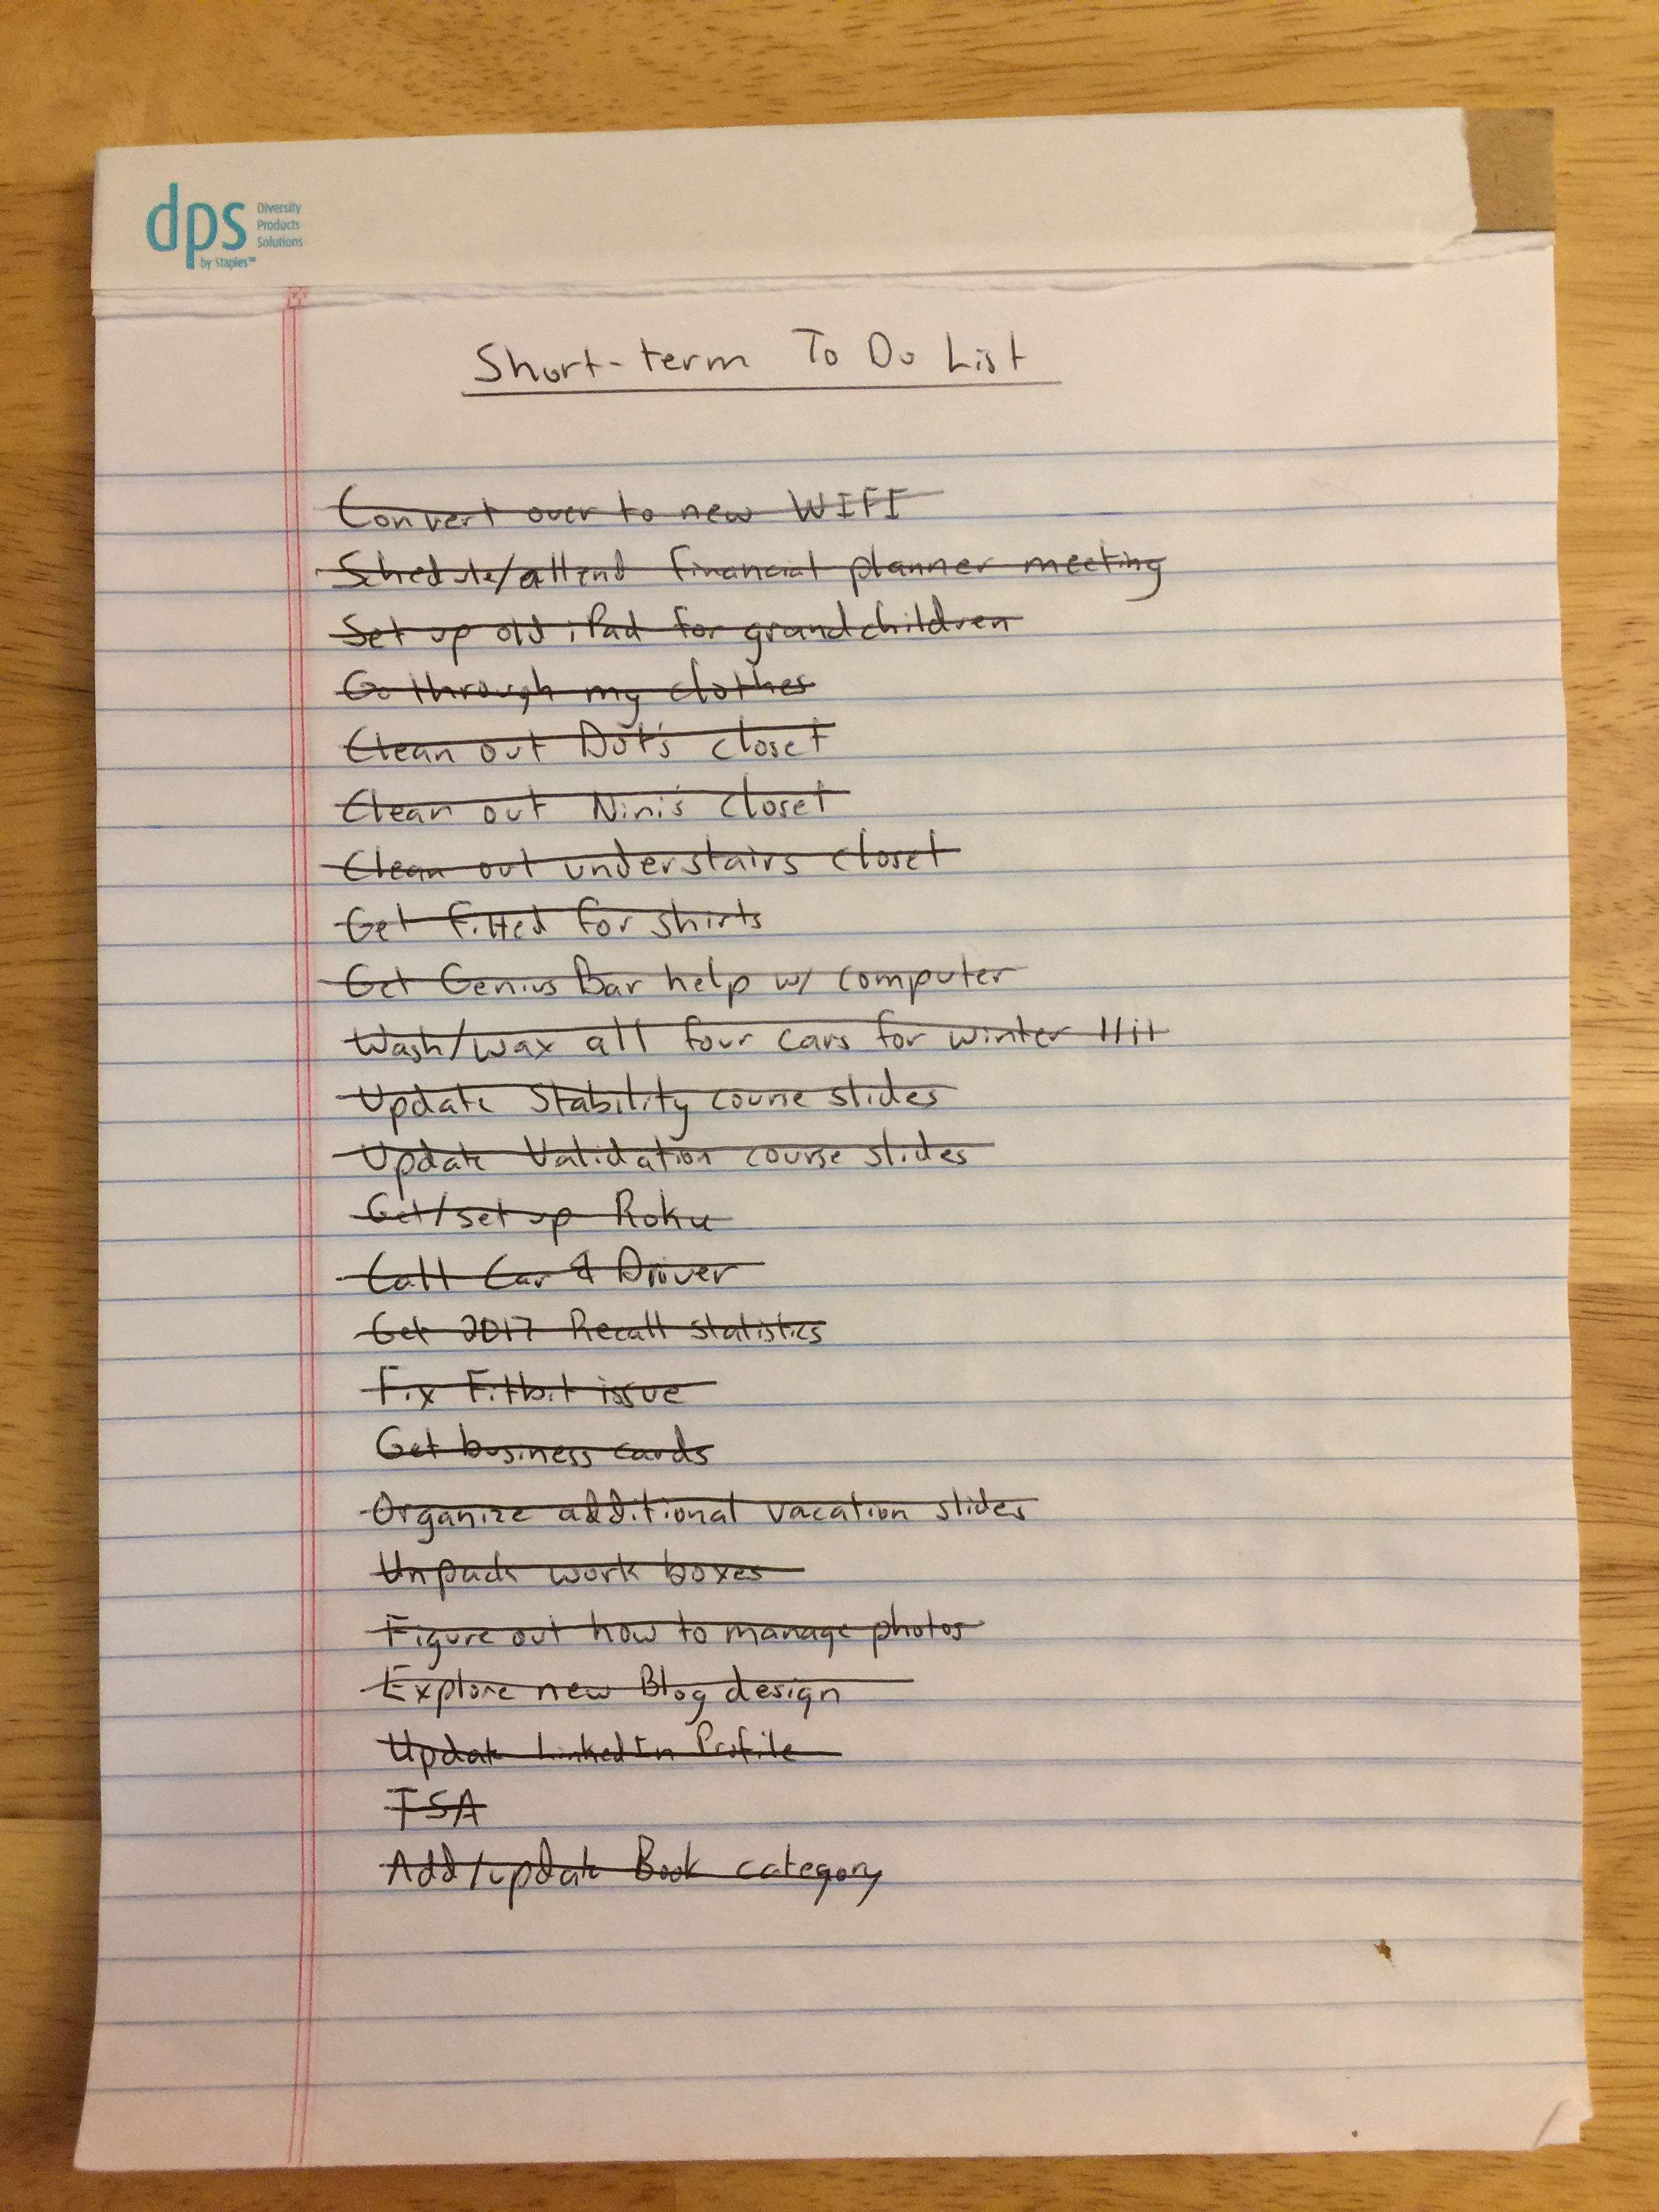 dps
Diversity
Products
Solutions
by Staples™
Short-term To Do List
Convert over to new WIFI
Schedule/attend financial planner meeting
Set up old iPad for grandchildren
Go through my clothes
Clean out Dot's closet
Clean out Nini's closet
Clean out understairs closet
Get fitted for shirts
Get Genius Bar help w/ computer
Wash/wax all four cars for winter
Update Stability course slides
Update Validation course slides
Get/set up Roku
Call Car & Driver
Get 2017 Recall statistics
Fix Fitbit issue
Get business cards
Organize additional vacation slides
Unpack work boxes
Figure out how to manage photos
Explore new Blog design
Update LinkedIn Profile
TSA
Add/update Book category